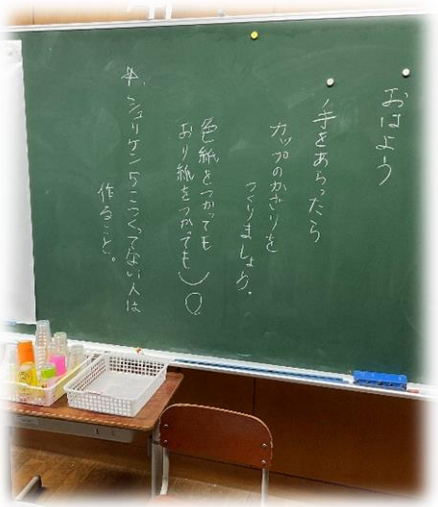 おはよう
手をあらったら
カップのかざりを
つくりましょう。
色紙をつかっても
おり紙をつかっても○
※シュリケン5こつくってない人は
作ること。